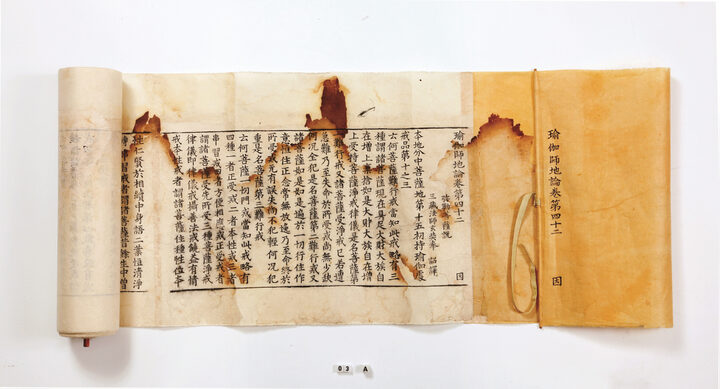 瑜伽師地論卷第四十二 因
瑜伽師地論卷第四十二 因
彌勒菩薩說
三藏法師玄奘奉 詔譯
本地分中菩薩地第十五初持瑜伽處
戒品第十之三
云何菩薩難行戒當知此戒略有三
種謂諸菩薩現在具足大財大族自
在增上棄捨如是大財大族自在增
上受持菩薩淨戒律儀是名菩薩第
一難行戒又諸菩薩受淨戒已若遭
急難乃至失命於所受戒尚無少缺
何況全犯是名菩薩第二難行戒又
諸菩薩如是如是遍於一切行住作
意恒住正念常無放逸乃至命終於
所受戒无有誤失尚不犯輕何況犯
重是名菩薩第三難行戒
云何菩薩一切門戒當知此戒略有
四種一者正受戒二者本性戒三者
串習戒四者方便相應戒正受戒者
謂諸菩薩受先所受三種菩薩淨戒
律儀即律儀戒攝善法戒饒益有情
戒本性戒者謂諸菩薩住種性位本
性仁賢於相續中身語二業恒清淨
轉串習戒者謂諸菩薩昔餘生中曾
03 A